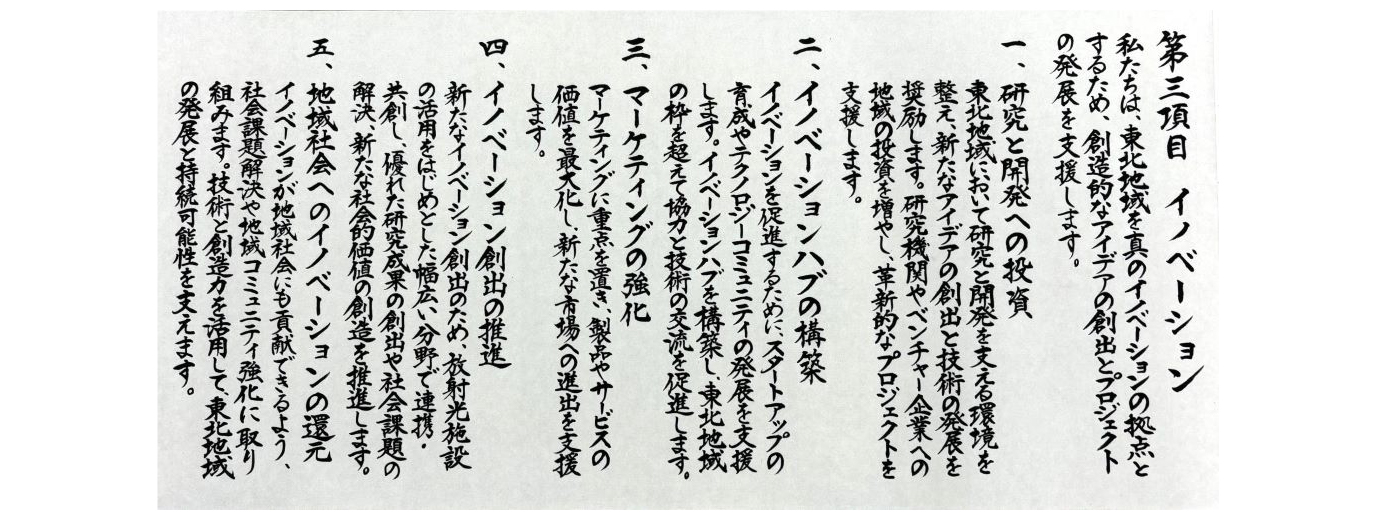 第三項目　イノベーション
私たちは、東北地域を真のイノベーションの拠点と
するため、創造的なアイデアの創出とプロジェクト
の発展を支援します。
一、研究と開発への投資
東北地域において研究と開発を支える環境を
整え、新たなアイデアの創出と技術の発展を
奨励します。研究機関やベンチャー企業への
地域の投資を増やし、革新的なプロジェクトを
支援します。
二、イノベーションハブの構築
イノベーションを促進するために、スタートアップの
育成やテクノロジーコミュニティの発展を支援
します。イノベーションハブを構築し、東北地域
の枠を超えて協力と技術の交流を促進します。
三、マーケティングの強化
マーケティングに重点を置き、製品やサービスの
価値を最大化し、新たな市場への進出を支援
します。
四、イノベーション創出の推進
新たなイノベーション創出のため、放射光施設
の活用をはじめとした幅広い分野で連携・
共創し、優れた研究成果の創出や社会課題の
解決、新たな社会的価値の創造を推進します。
五、地域社会へのイノベーションの還元
イノベーションが地域社会にも貢献できるよう、
社会課題解決や地域コミュニティ強化に取り
組みます。技術と創造力を活用して、東北地域
の発展と持続可能性を支えます。